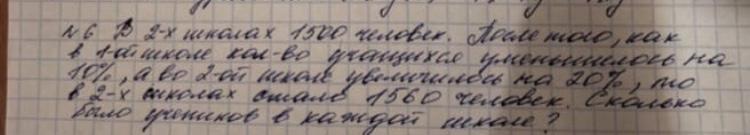 №6 В 2-х школах 1500 человек. После того, как
в 1-ой школе кол-во учащихся уменьшилось на
10%, а во 2-ой школе увеличилось на 20%, то
в 2-х школах стало 1560 человек. Сколько
было учеников в каждой школе?